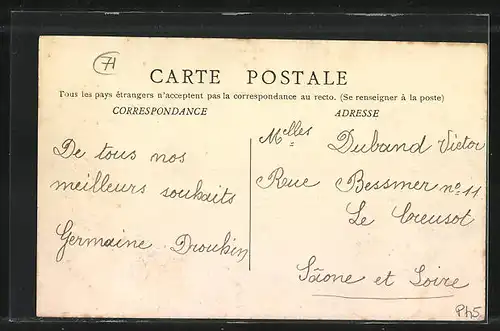 71
CARTE POSTALE
Tous les pays étrangers n'acceptent pas la correspondance au recto. (Se renseigner à la poste)
CORRESPONDANCE
ADRESSE
De tous nos
meilleurs souhaits
Germaine Drouhin
Melles Duband Victor
Rue Bessmer n° 11
Le Creusot
Sâone et Loire
Ph5